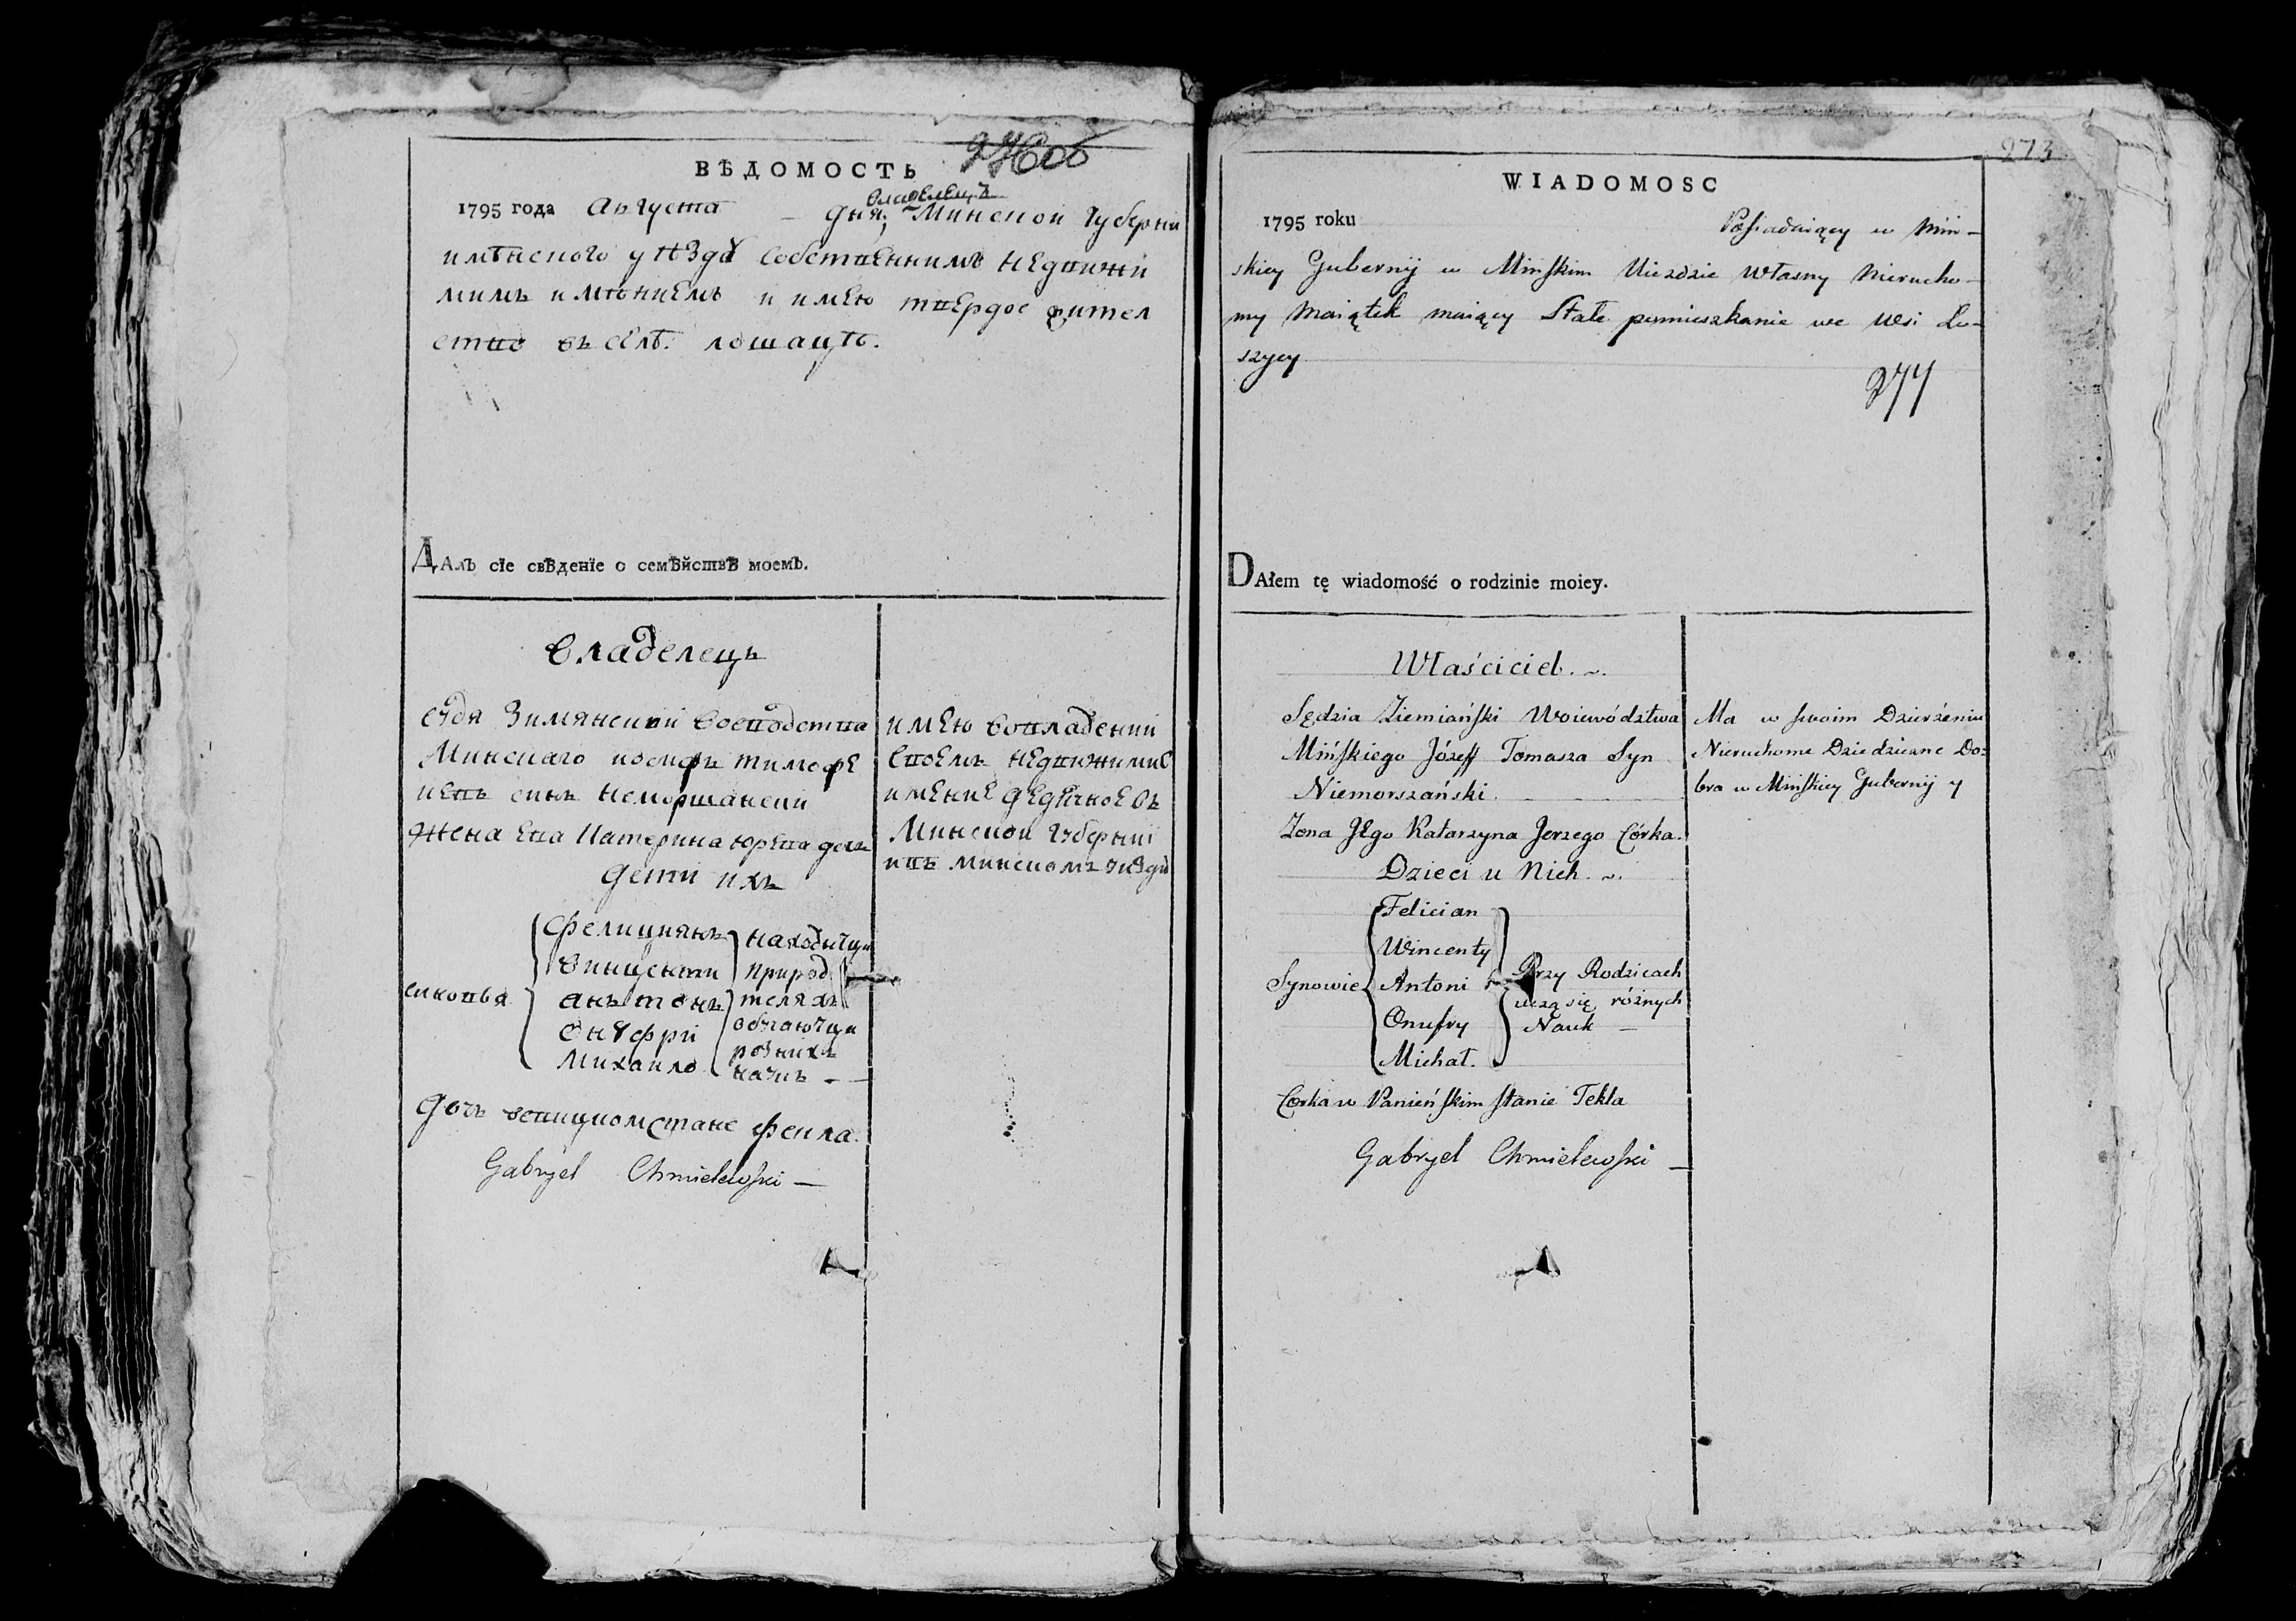 ВѢДОМОСТЬ
владелецъ
1795 года Августа — дня; Минской Губернии
имѣнского уѣзда собственнимъ недвижи
мимъ имѣниемъ и имею твердое жител
ство въ селѣ: лошацѣ.
ДАлъ сїе свѣденїе о семѣйствѣ моемъ.
Владелецъ
судя Зимянский Воеводства
Минскаго иосифъ тимофе
иевъ синъ Неморшански
жена Ева Катерина юрева дочь
дети ихъ
синовья
Фелициянъ
Винценти
анътонъ
Онуфри
Михаило
находитци
при род
теляхъ
обчаютци
розних
наукъ —
дочь
стане Фекла
Gabryel Chmielewski —
имею вовладении
своемъ недвижимие
имение дедичное въ
Минской Губернии
ивъ минскомъ уезди
273
WIADOMOSC
1795 roku Possiadaiący w Min-
skiey Gubernij w Minskim Uiezdzie własny Nierucho-
my Maiątek maiący Stałe pomieszkanie we Wsi Lo-
szycy
277
DAłem tę wiadomość o rodzinie moiey.
Właściciel. ~.
Sędzia Ziemiański Woiewództwa
Mińskiego Józeff Tomasza Syn
Niemorszański.
Zona JEgo Katarzyna Jerzego Córka.
Dzieci u Nich. ~.
Synowie
Felician
Wincenty
Antoni
Onufry
Michał.
Przy Rodzicach
uczą się różnych
Nauk —
Corka w Panieńskim stanie Tekla
Gabryel Chmielewski —
Ma w swoim Dzierżeniu
Nieruchome Dziedziczne Do=
bra w Mińskiey Gubernij y